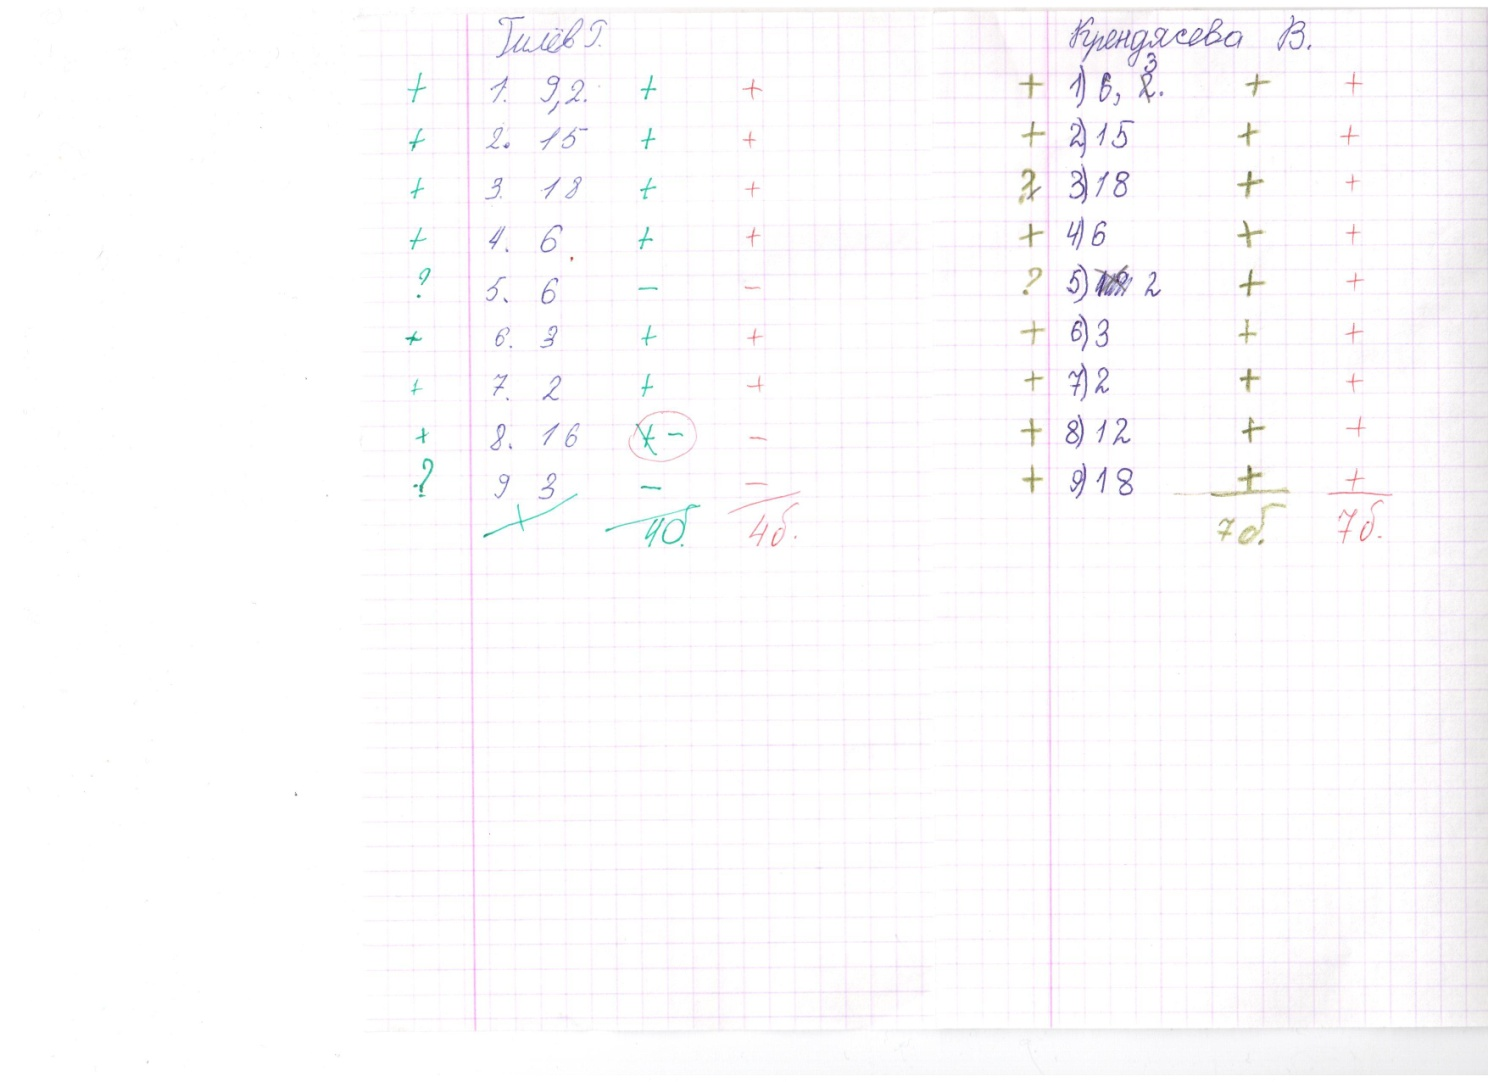 Гилёв Г.
+ 1. 9,2. + +
+ 2. 15 + +
+ 3. 18 + +
+ 4. 6 + +
? 5. 6 - -
+ 6. 3 + +
+ 7. 2 + +
+ 8. 16 - -
? 9 3 - -
4б. 4б.
Крендясева В.
+ 1) 6, 3. + +
+ 2) 15 + +
3) 18 + +
+ 4) 6 + +
? 5) 2 + +
+ 6) 3 + +
+ 7) 2 + +
+ 8) 12 + +
+ 9) 18 + +
7б. 7б.